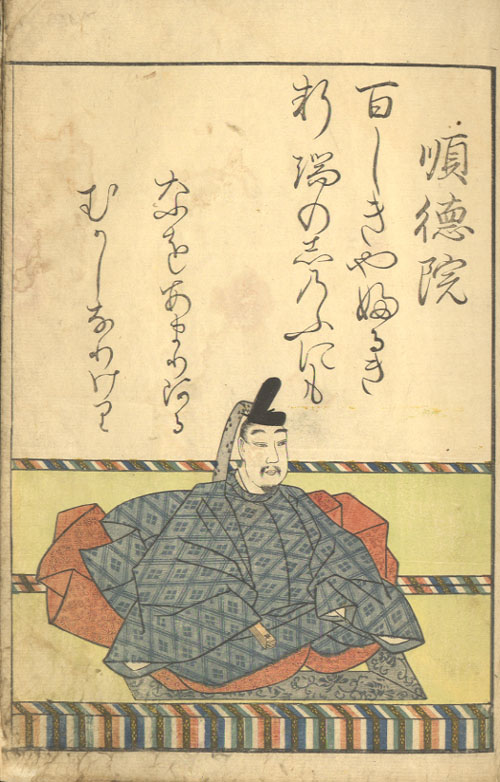 順徳院
百しきや婦るき
軒端の志乃ふにも
なをあまり阿る
むかしなりけ里